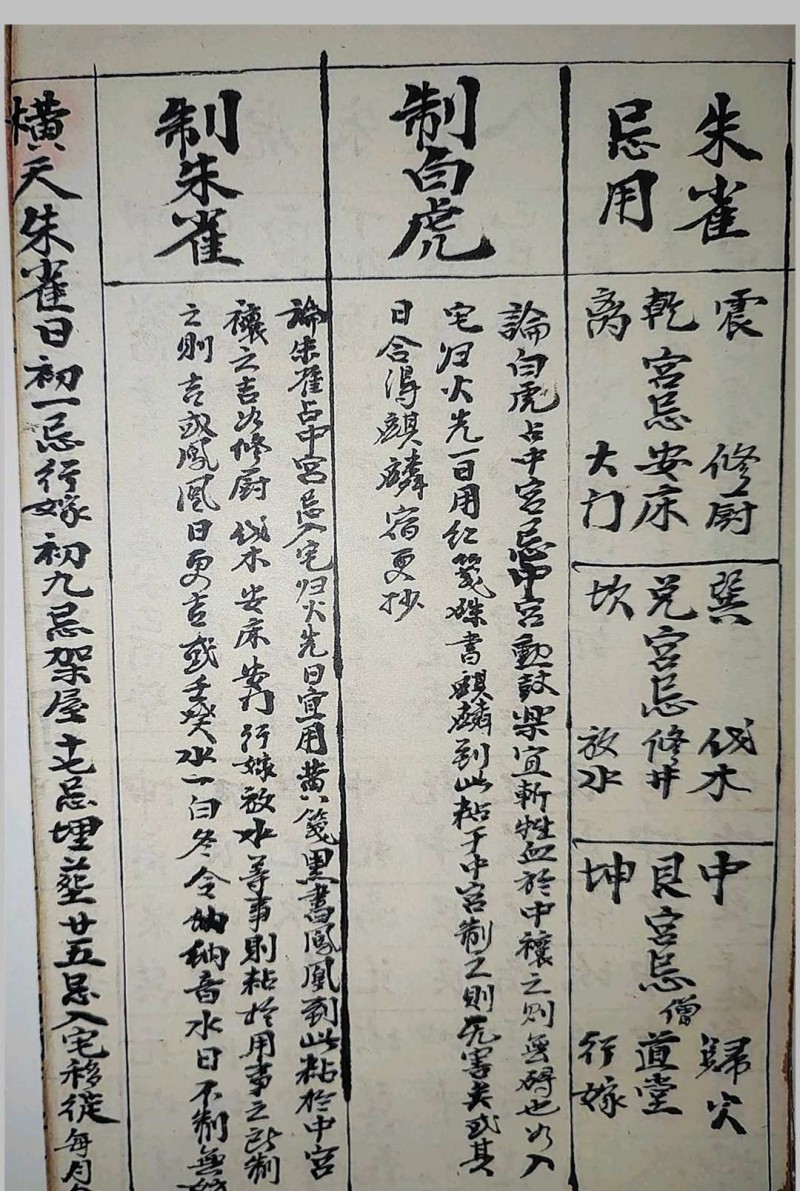 朱雀
忌用
震 修厨
乾宫忌安床
离 大门
巽 伐木
兑宫忌修井
坎 放水
中 歸火
艮宫忌僧道堂
坤 行嫁
制白虎
論白虎占中宮忌中宮動鼓樂宜斬牲血於中禳之則無碍也如入
宅归火先一日用红箋硃書麒麟到此粘于中宫制之則无害矣或其
日合得麒麟宿更抄
制朱雀
論朱雀占中宮忌入宅归火先日宜用黄箋黑書鳳凰到此粘於中宫
禳之吉如修厨伐木安床安门行嫁放水等事則粘於用事之所制
之則吉或鳳凰日更吉或壬癸水一白冬令納音水日不制無
横天朱雀日初一忌行嫁初九忌架屋十七忌埋葬廿五忌入宅移徙每月